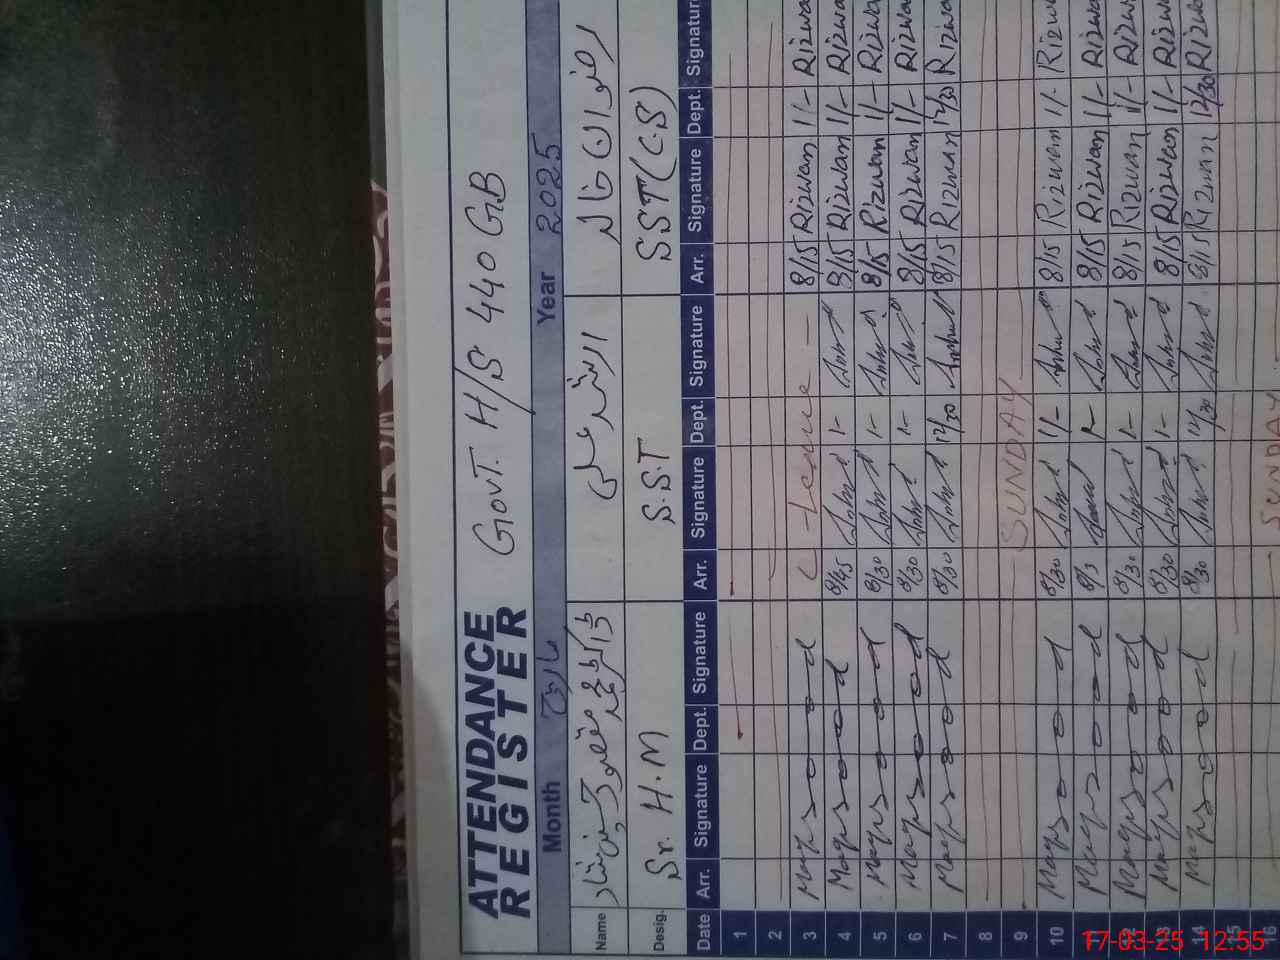 ATTENDANCE REGISTER GOVT. H/S 440 GB
Month مارچ Year 2025
Name راشد علی رضوان خالد
Desig. Sr. H.M S.S.T SST (C.S)
Date Arr. Signature Dept. Signature Arr. Signature Dept. Signature Arr. Signature Dept. Signature
1
2
3 Maqsood C-Leave 8/15 Rizwan 1/- Rizwan
4 Maqsood 8/45 1- 8/15 Rizwan 1/- Rizwan
5 Maqsood 8/30 1- 8/15 Rizwan 1/- Rizwan
6 Maqsood 8/30 1- 8/15 Rizwan 1/- Rizwan
7 Maqsood 8/30 12/30 8/15 Rizwan 12/30 Rizwan
8
9 SUNDAY
10 Maqsood 8/30 1/- 8/15 Rizwan 1/- Rizwan
11 Maqsood 1- 8/15 Rizwan 1/- Rizwan
12 Maqsood 8/30 1- 8/15 Rizwan 1/- Rizwan
13 Maqsood 8/30 1- 8/15 Rizwan 1/- Rizwan
14 Maqsood 8/30 12/30 8/15 Rizwan 12/30 Rizwan
15
16 SUNDAY
17-03-25 12:55